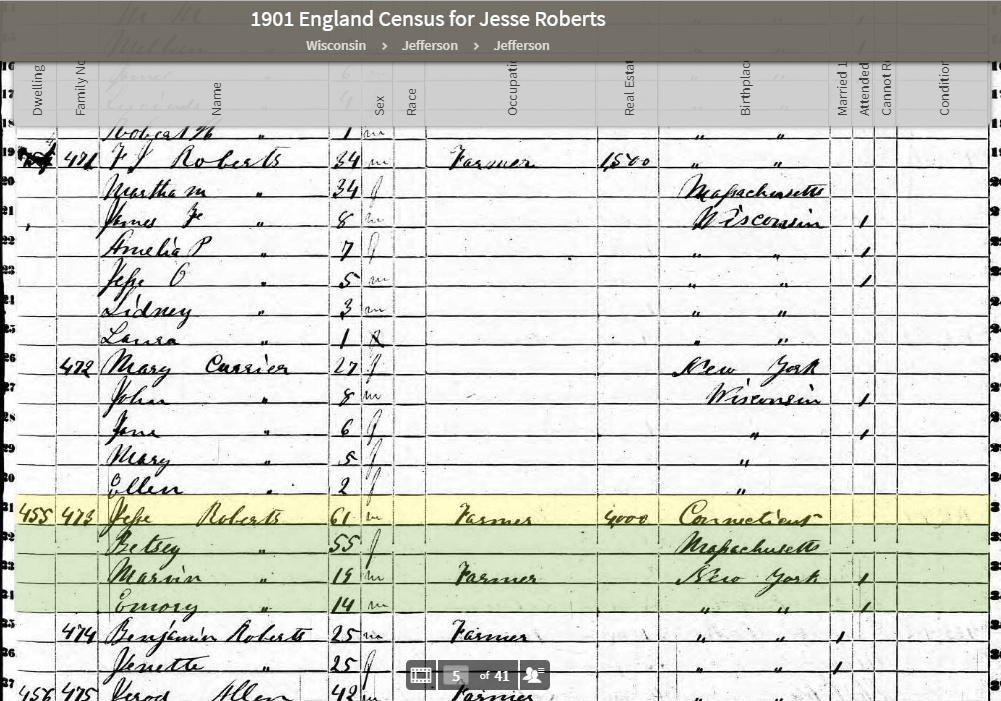 1901 England Census for Jesse Roberts
Wisconsin > Jefferson > Jefferson
Dwelling Family No Name Sex Race Occupati Real Estat Birthplac Married 1 Attended Cannot R Condition
16
17
18 Robert N " 1 m " "
19 471 F J Roberts 34 m Farmer 1,500 " "
20 Martha m " 34 f Massachusetts
21 James " 8 m Wisconsin 1
22 Amelia P 7 f " " 1
Jesse O " 5 m " " 1
Sidney " 3 m " "
25 Laura " 1 " "
26 472 Mary Currier 27 f New York
27 John " 8 m Wisconsin 1
28 Jane " 6 f " 1
29 Mary " 5 f "
30 Ellen 2 f "
31 455 473 Jesse Roberts 61 m Farmer 4000 Connecticut
Betsey " 55 f Massachusetts
33 Marvin " 19 m Farmer New York 1
Emory " 14 m " " 1
474 Benjamin Roberts 25 m Farmer " " 1
Venette " 25 f " " 1
456 475 Allen 42 m Farmer
5 of 41